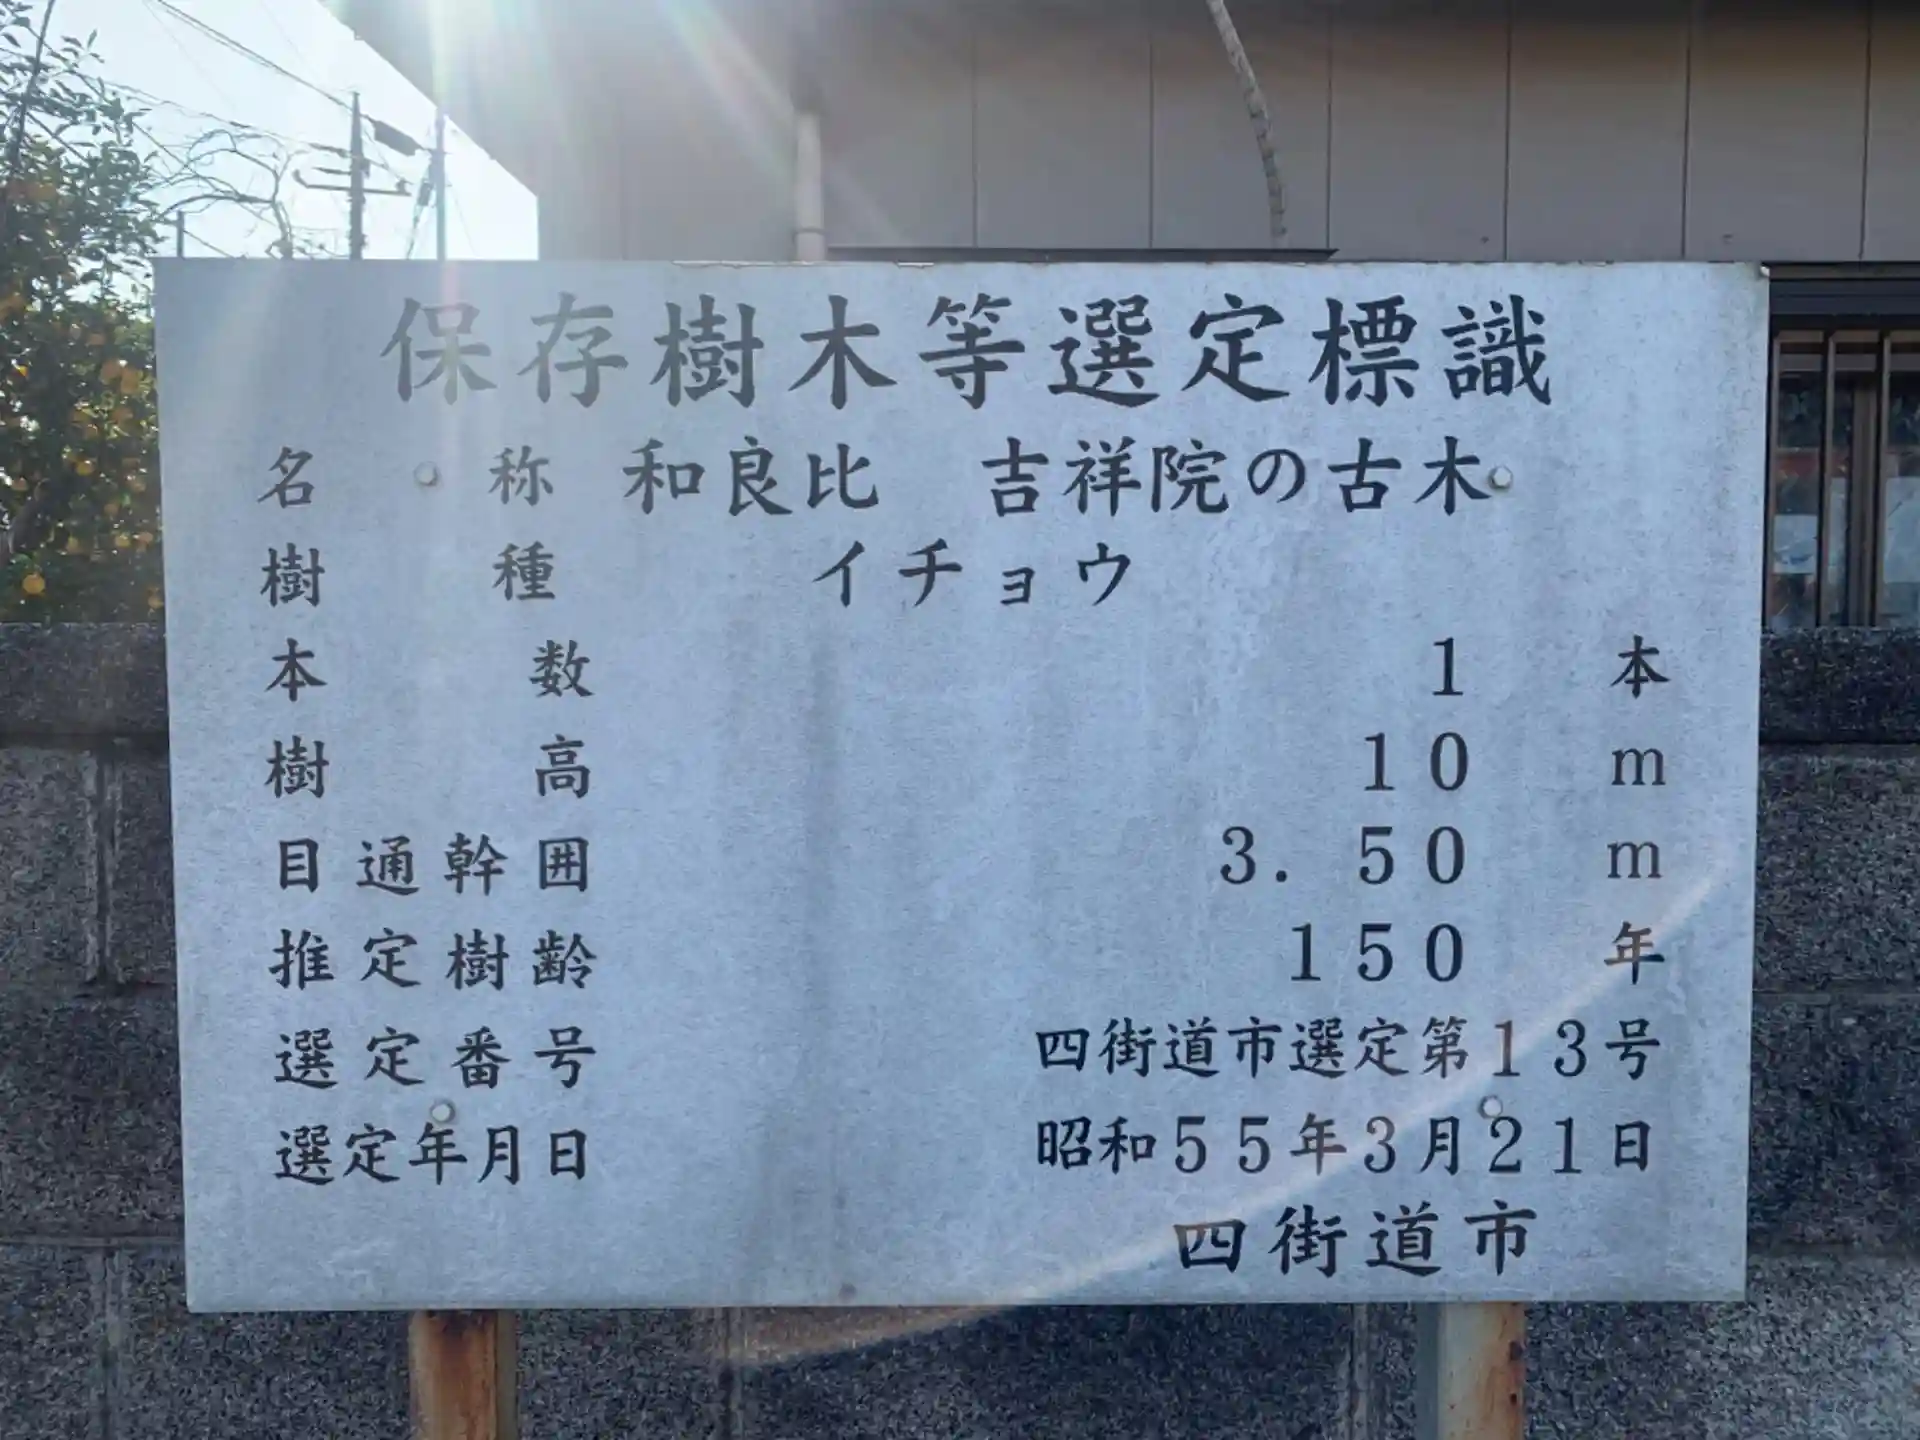 保存樹木等選定標識
名称 和良比 吉祥院の古木
樹種 イチョウ
本数 1 本
樹高 10 m
目通幹囲 3.50 m
推定樹齢 150 年
選定番号 四街道市選定第13号
選定年月日 昭和55年3月21日
四街道市